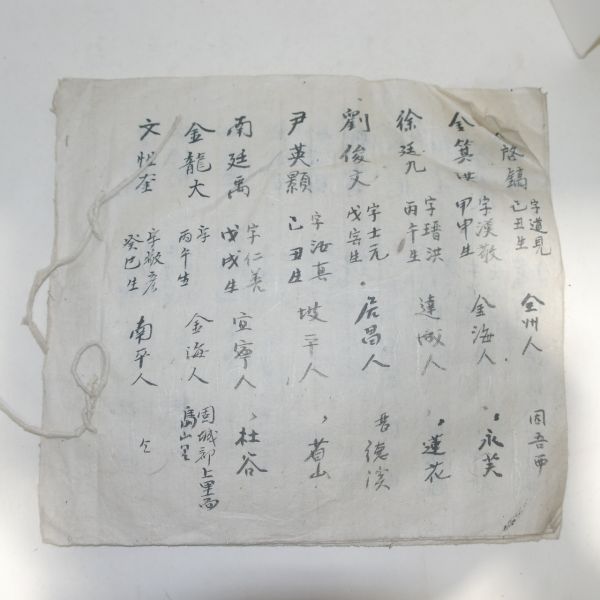 啓鎬 字道見 己丑生 全州人 固吾面
金箕 字漢敬 甲申生 金海人 永芙
徐廷九 字瑨洪 丙午生 達城人 蓮花
劉俊文 字士元 戊寅生 居昌人 德溪
尹英顯 字 真 己丑生 坡平人 山
南廷禹 字仁善 戊戌生 宜寧人 杜谷
金龍大 字 丙午生 金海人 固城郡上里面 山里
文 奎 字敬彦 癸巳生 南平人 仝